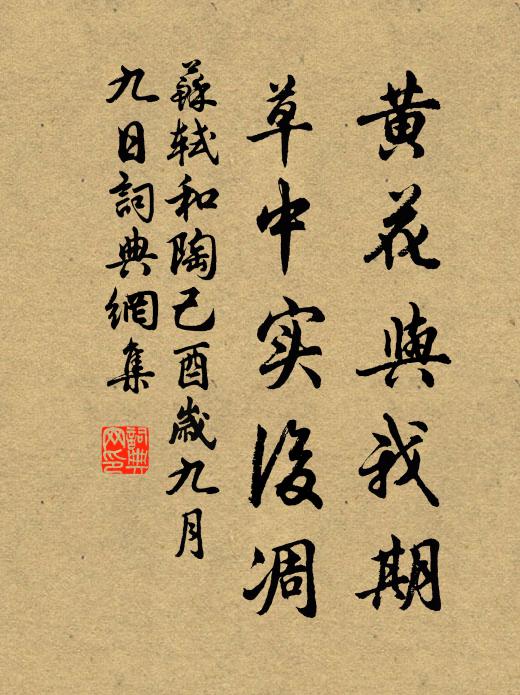 黄花與我期
草中实後凋
蘇軾和陶己酉歲九月
九日詞典網集
詞典網印